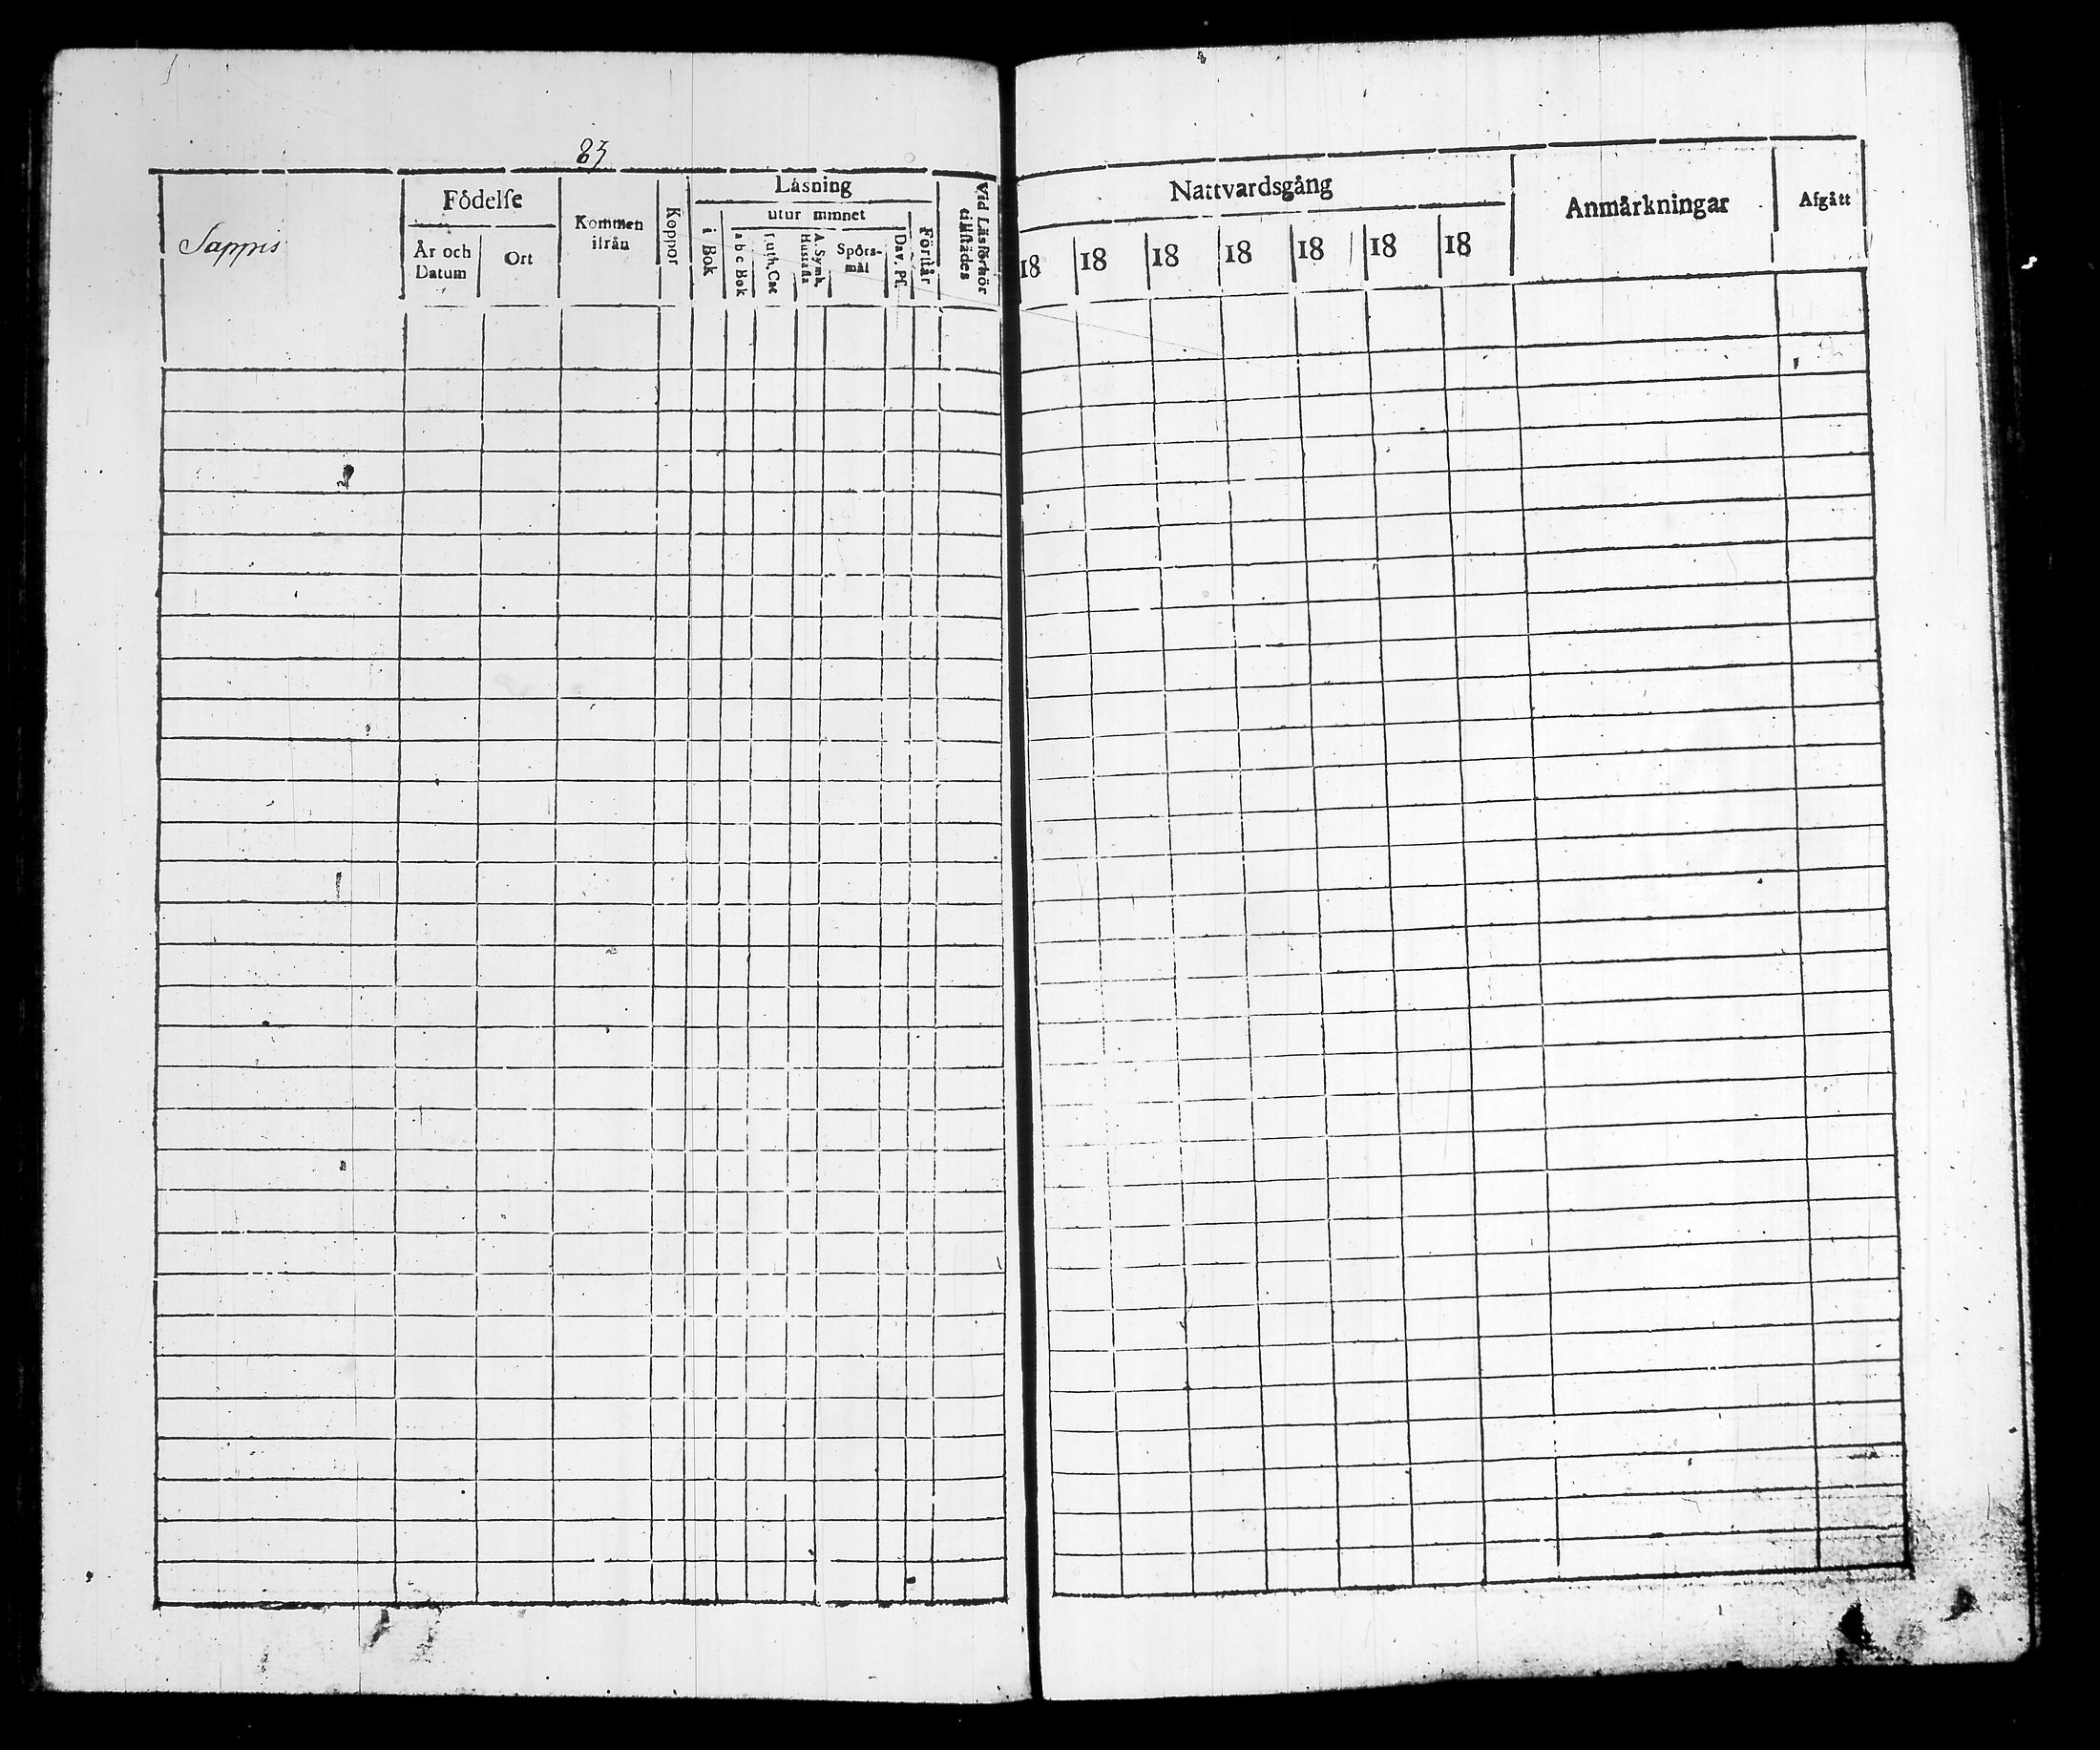 83
Sappis
Födelse
År och Datum
Ort
Kommen ifrån
Koppor
Läsning
i Bok
utur minnet
a b c Bok
Luth. Cat
A. Symb. Hustafla
Spörs-mål
Dav. Ps.
Förstår
Vid Läsförhör tillstädes
Nattvardsgång
18 18 18 18 18 18 18
Anmärkningar
Afgått